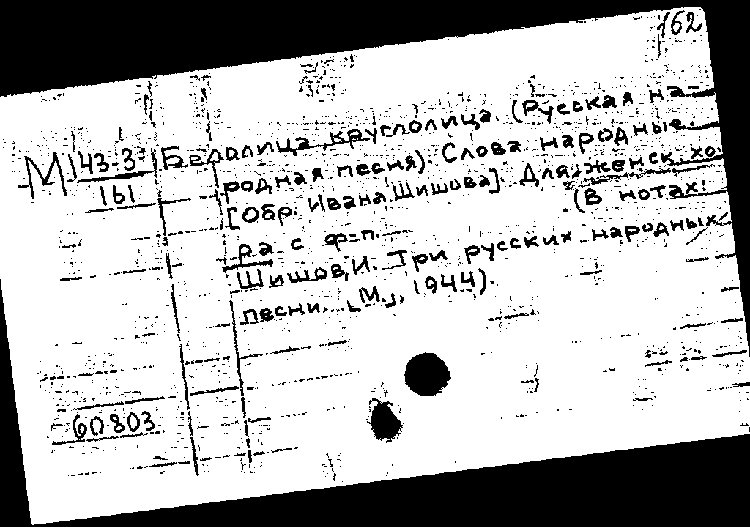 162
М 43-3
161
Белолица, круглолица. (Русская на-
родная песня). Слова народные.
[Обр. Ивана Шишова]. Для женск. хо-
ра с ф-п. (В нотах:
Шишов, И. Три русских народных
песни. [М.], 1944).
60803